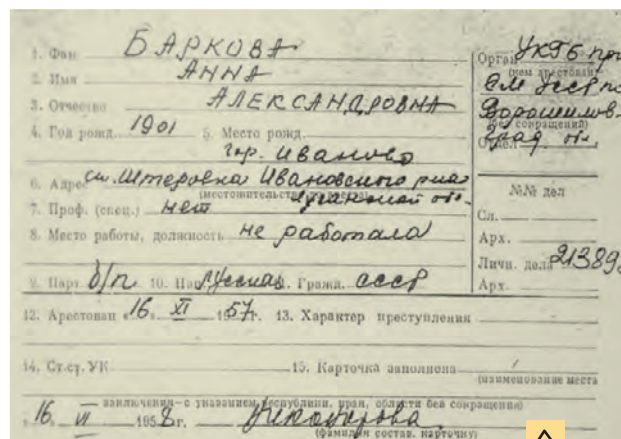 1. Фам БАРКОВА
2. Имя АННА
3. Отчество АЛЕКСАНДРОВНА
4. Год рожд. 1901 5. Место рожд.
гор. Иваново
6. Адрес ст. Штеровка Ивановского
(местожительство
7. Проф. (спец.) нет
8. Место работы, должность не работала
9. Парт б/п 10. Нац Русская. Гражд. СССР
12. Арестован «16» XI 1957г. 13. Характер преступления
14. Ст.ст. УК 15. Карточка заполнена
(наименование места
заключения—с указанием республики, края, области без сокращения)
„16„ VI 1958 г.
(фамилия состав. карточку)
Орган УКГБ при
(кем арестован)
СМ УССР по
Ворошилов-
(без сокращений)
град. обл.
Отдел
№№ дел
Сл.
Арх.
Личн. дела 21389
Арх.